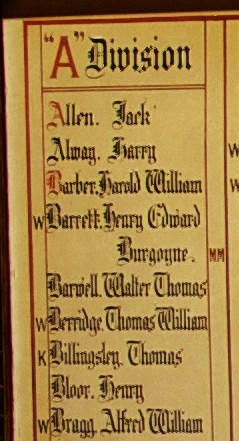 "A" Division
Allen. Jack
Alway. Harry
Barber. Harold William
W Barrett. Henry Edward
Burgoyne. MM
Barwell. Walter Thomas
W Berridge. Thomas William
K Billingsley. Thomas
Bloor. Henry
W Bragg. Alfred William
W
W